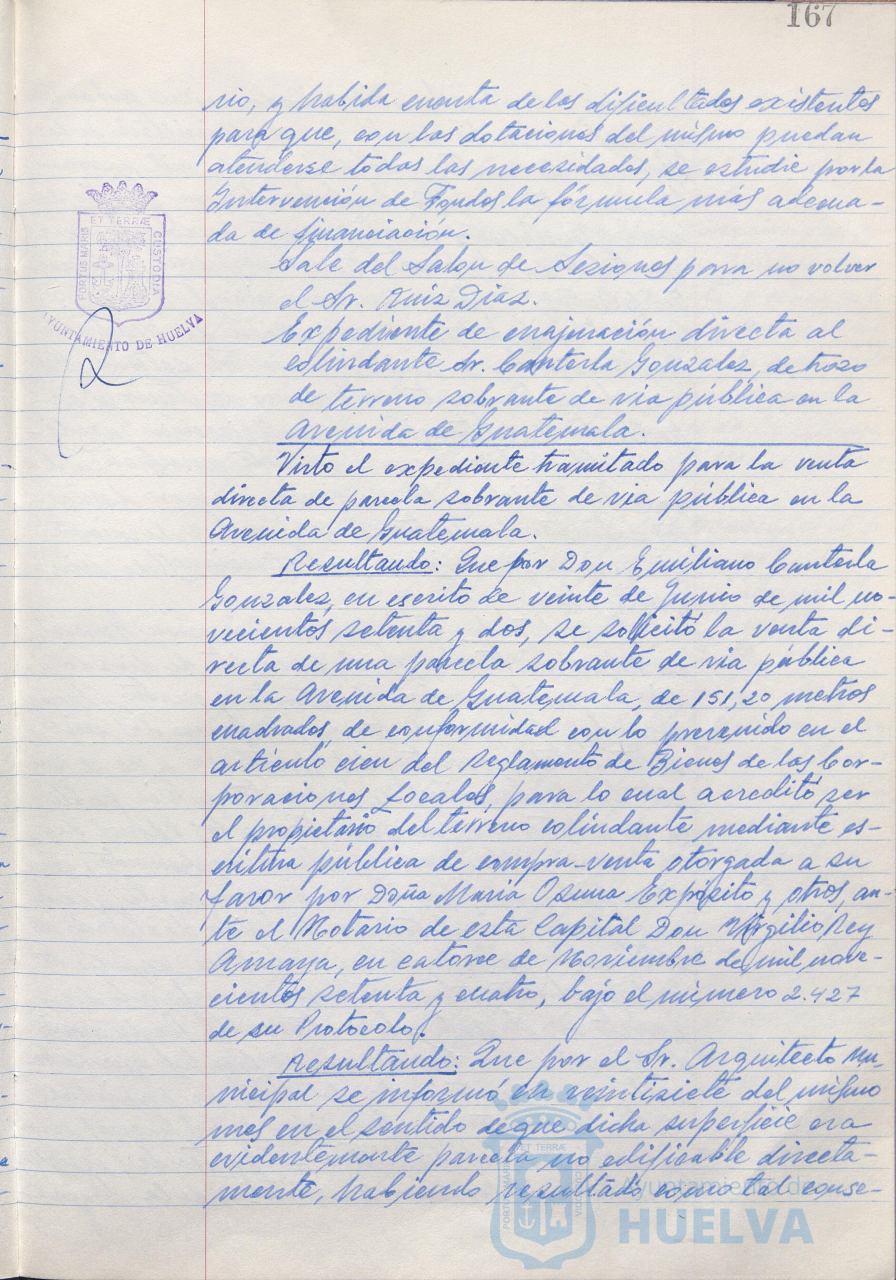 167
rio, y habida cuenta de las dificultades existentes
para que, con las dotaciones del mismo puedan
atenderse todas las necesidades, se estudie por la
Intervención de Fondos la fórmula más adecua-
da de financiación.
Sale del Salon de Sesiones para no volver
el Sr. Ruiz Diaz.
Expediente de enajenación directa al
colindante Sr. Canterla Gonzalez, de trozo
de terreno sobrante de via pública en la
Avenida de Guatemala.
Visto el expediente tramitado para la venta
directa de parcela sobrante de via pública en la
Avenida de Guatemala.
Resultando: Que por Don Emiliano Canterla
Gonzalez, en escrito de veinte de Junio de mil no-
vecientos setenta y dos, se solicitó la venta di-
recta de una parcela sobrante de via pública
en la Avenida de Guatemala, de 151,20 metros
cuadrados, de conformidad con lo prevenido en el
artículo cien del Reglamento de Bienes de las Cor-
poraciones Locales, para lo cual acreditó ser
el propietario del terreno colindante mediante es-
critura pública de compra-venta otorgada a su
favor por Doña Maria Osuna Expósito y otros, an-
te el Notario de esta Capital Don Virgilio Rey
Amaya, en catorce de Noviembre de mil nove-
cientos setenta y cuatro, bajo el número 2.427
de su Protocolo.
Resultando: Que por el Sr. Arquitecto Mu-
nicipal se informó en veintisiete del mismo
mes en el sentido de que dicha superficie era
evidentemente parcela no edificable directa-
mente, habiendo resultado como tal conse-
PORTUS MARIS
ET TERRÆ
CUSTODIA
AYUNTAMIENTO DE HUELVA
ET TERRÆ
Ayuntamiento de
HUELVA